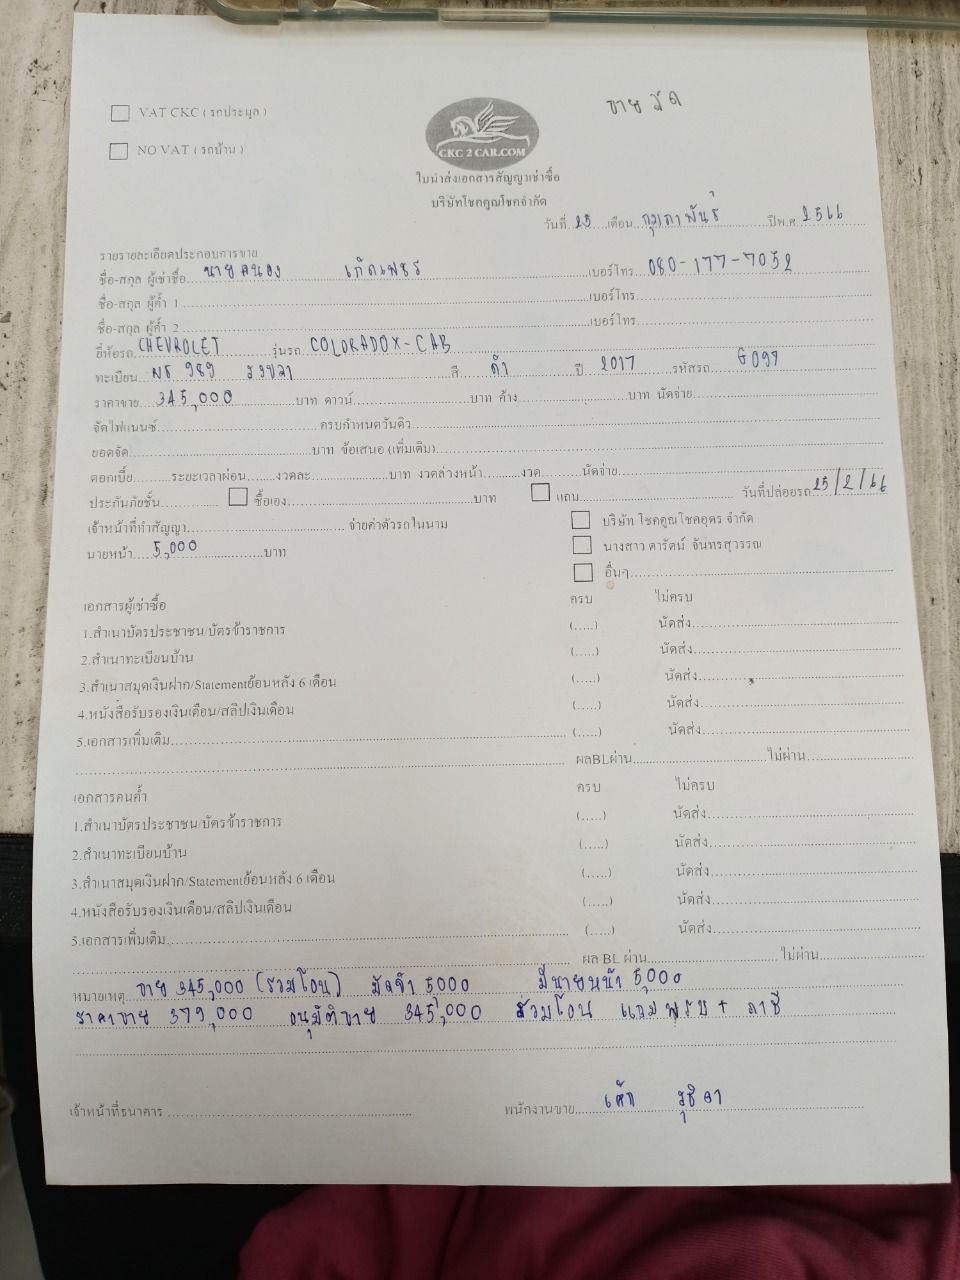 VAT CKC ( รถประมูล )
NO VAT ( รถบ้าน )
CKC 2 CAR.COM
ขาย สด
ใบนำส่งเอกสารสัญญาเช่าซื้อ
บริษัทโชคคูณโชคจำกัด
วันที่ 25 เดือน กุมภาพันธ์ ปีพ.ศ. 2566
รายรายละเอียดประกอบการขาย
ชื่อ-สกุล ผู้เช่าซื้อ นายสนอง เกิดเพชร เบอร์โทร 080-177-7052
ชื่อ-สกุล ผู้ค้ำ 1 เบอร์โทร
ชื่อ-สกุล ผู้ค้ำ 2 เบอร์โทร
ยี่ห้อรถ CHEVROLET รุ่นรถ COLORADO X-CAB
ทะเบียน 989 สงขลา สี ดำ ปี 2017 รหัสรถ G097
ราคาขาย 345,000 บาท ดาวน์ บาท ค้าง บาท นัดจ่าย
จัดไฟแนนซ์ ครบกำหนดวันคิว
ยอดจัด บาท ข้อเสนอ (เพิ่มเติม)
ดอกเบี้ย ระยะเวลาผ่อน งวดละ บาท งวดล่วงหน้า งวด นัดจ่าย
ประกันภัยชั้น ซื้อเอง บาท แถม วันที่ปล่อยรถ 25/2/66
เจ้าหน้าที่ทำสัญญา จ่ายค่าตัวรถในนาม บริษัท โชคคูณโชคอุดร จำกัด
นายหน้า 5,000 บาท นางสาว ดารัตน์ จันทรสุวรรณ
อื่นๆ
เอกสารผู้เช่าซื้อ ครบ ไม่ครบ
1.สำเนาบัตรประชาชน/บัตรข้าราชการ (.....) นัดส่ง
2.สำเนาทะเบียนบ้าน (.....) นัดส่ง
3.สำเนาสมุดเงินฝาก/Statementย้อนหลัง 6 เดือน (.....) นัดส่ง
4.หนังสือรับรองเงินเดือน/สลิปเงินเดือน (.....) นัดส่ง
5.เอกสารเพิ่มเติม (.....) นัดส่ง
ผลBLผ่าน ไม่ผ่าน
เอกสารคนค้ำ ครบ ไม่ครบ
1.สำเนาบัตรประชาชน/บัตรข้าราชการ (.....) นัดส่ง
2.สำเนาทะเบียนบ้าน (.....) นัดส่ง
3.สำเนาสมุดเงินฝาก/Statementย้อนหลัง 6 เดือน (.....) นัดส่ง
4.หนังสือรับรองเงินเดือน/สลิปเงินเดือน (.....) นัดส่ง
5.เอกสารเพิ่มเติม (.....) นัดส่ง
ผล BL ผ่าน ไม่ผ่าน
หมายเหตุ ขาย 345,000 (รวมโอน) มัดจำ 5000 มีนายหน้า 5,000
ราคาขาย 379,000 อนุมัติขาย 345,000 รวมโอน แถมพรบ + ภาษี
เจ้าหน้าที่ธนาคาร พนักงานขาย